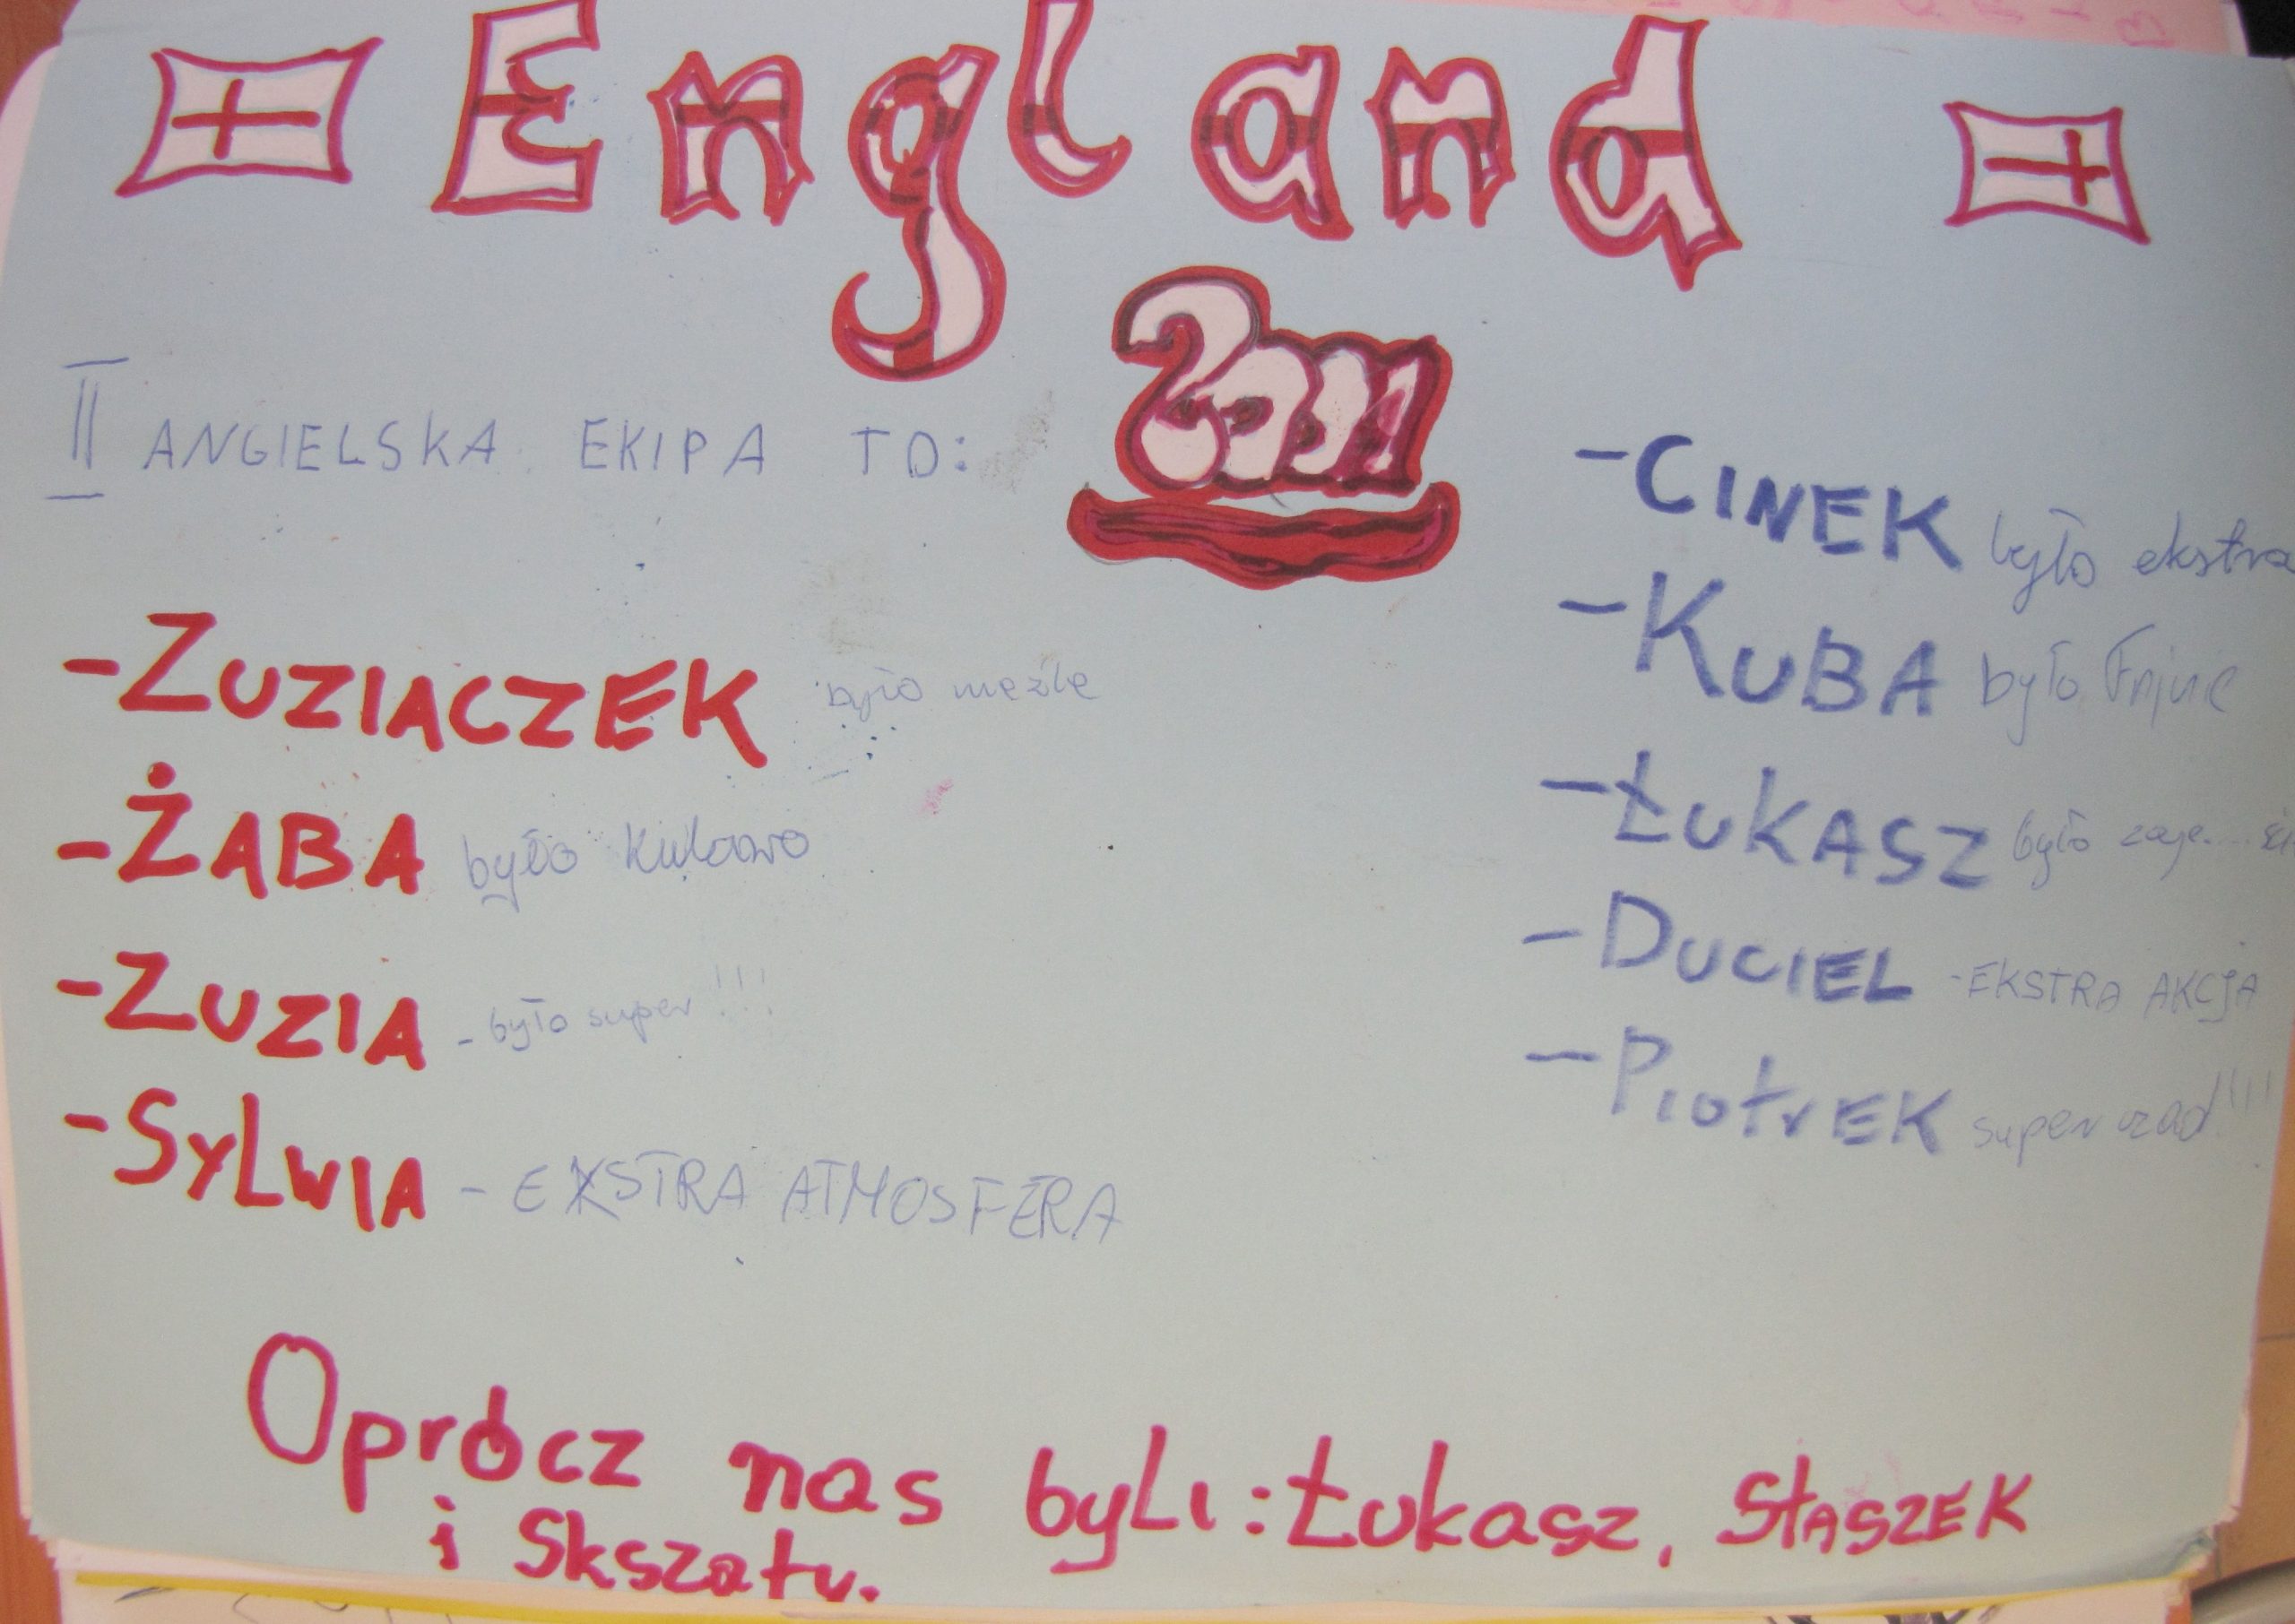 England
2011
II ANGIELSKA EKIPA TO:
-ZUZIACZEK było nieźle
-ŻABA było kulowo
-ZUZIA - było super !!!
-SYLWIA - EKSTRA ATMOSFERA
-CINEK było ekstra
-KUBA było fajnie
-ŁUKASZ było zaje....
-DUCIEL -EKSTRA AKCJA
-PiotrEK super !!!!
Oprócz nas byli: Łukasz, StASZEK
i Skszatu.